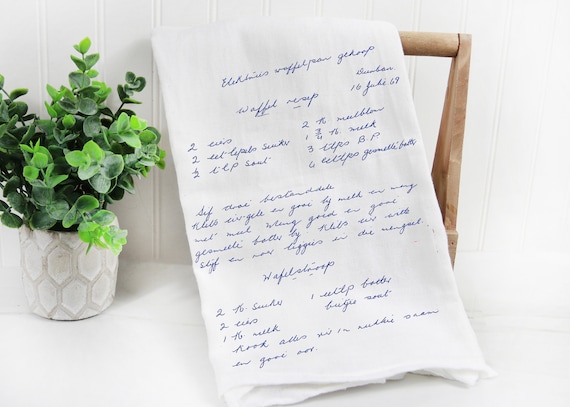 Elektriese waffelpan gekoop
Durban
16 Julie 69
Waffel resep
2 eiers
2 eet-lepels suiker
½ t'l P sout
2 K meelblom
1 ¾ K melk
3 t'lps B.P
4 eetlps gesmelte botter
Sif droë bestanddele
Klits eiergele en gooi by melk en meng
met meel. Meng goed en gooi
gesmelte botter by. Klits eier witte
styf en vou liggies in die mengsel.
Wafelstroop
2 K. Suiker
2 eiers
1 K melk
1 eetlp botter
bietjie sout
Kook alles vir 'n rukkie saam
en gooi oor.